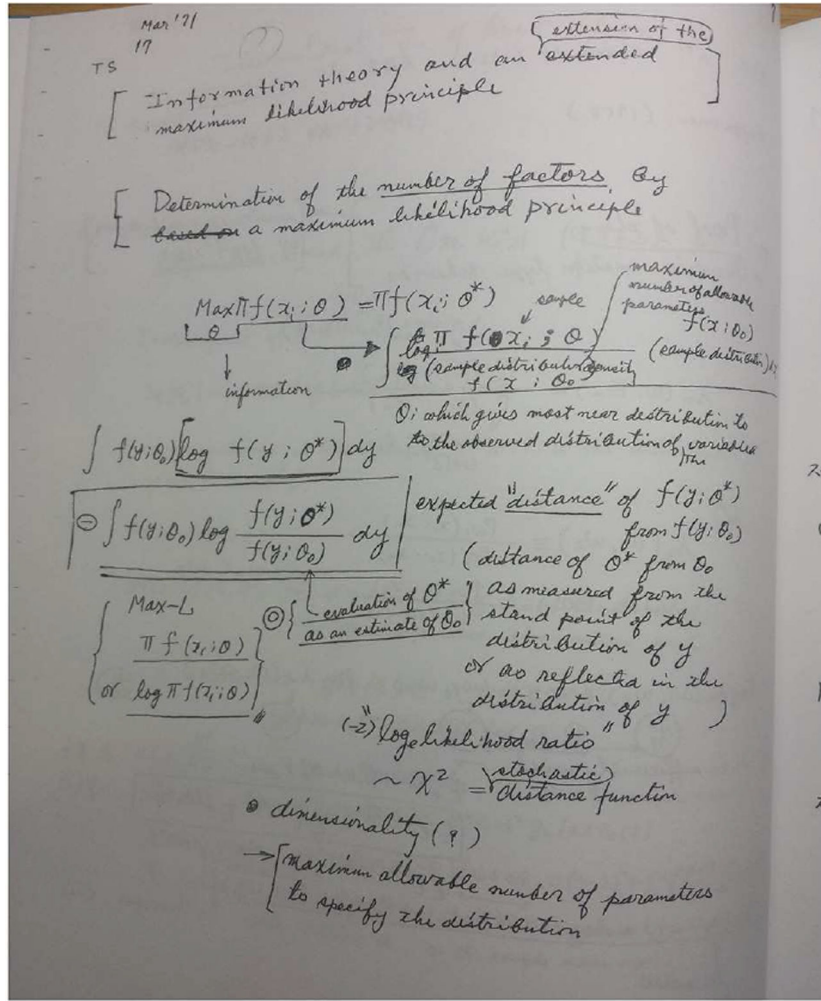 Mar '71
17
TS
extension of the
Information theory and an extended
maximum likelihood principle
Determination of the number of factors by
based on a maximum likelihood principle
Max π f(xi ; θ) = π f(xi ; θ*)
θ
information
sample
maximum
number of allowable
parameters
f(x ; θ0)
(sample distribution)
log π f(xi ; θ)
log (sample distribution density
f(x ; θ0
θ; which gives most near distribution to
to the observed distribution of variables
∫ f(y;θ0) [log f(y ; θ*)] dy
⊖ ∫ f(y;θ0) log f(y;θ*) / f(y;θ0) dy
The
expected "distance" of f(y;θ*)
from f(y;θ0)
(distance of θ* from θ0
as measured from the
stand point of the
distribution of y
or as reflected in the
distribution of y )
Max-L
π f(xi;θ)
or log π f(xi;θ)
◎ { evaluation of θ*
as an estimate of θ0 }
(-2) "loge likelihood ratio"
~ χ² = stochastic
distance function
dimensionality (?)
→ [maximum allowable number of parameters
to specify the distribution